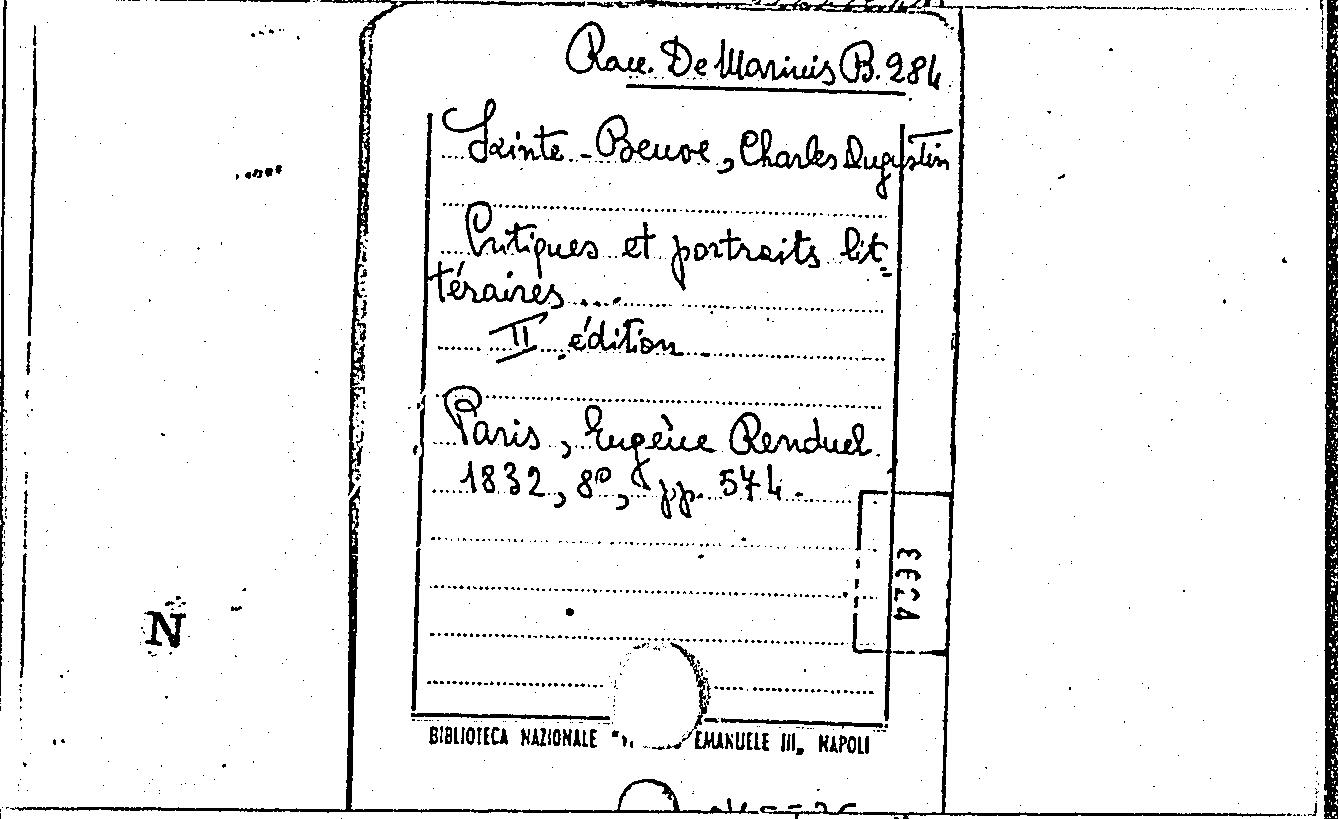 Racc. De Marinis B. 284
Sainte-Beuve, Charles Augustin
Critiques et portraits lit-
téraires...
II édition
Paris, Eugène Renduel
1832, 8º, pp. 574.
N
BIBLIOTECA NAZIONALE " EMANUELE III, NAPOLI